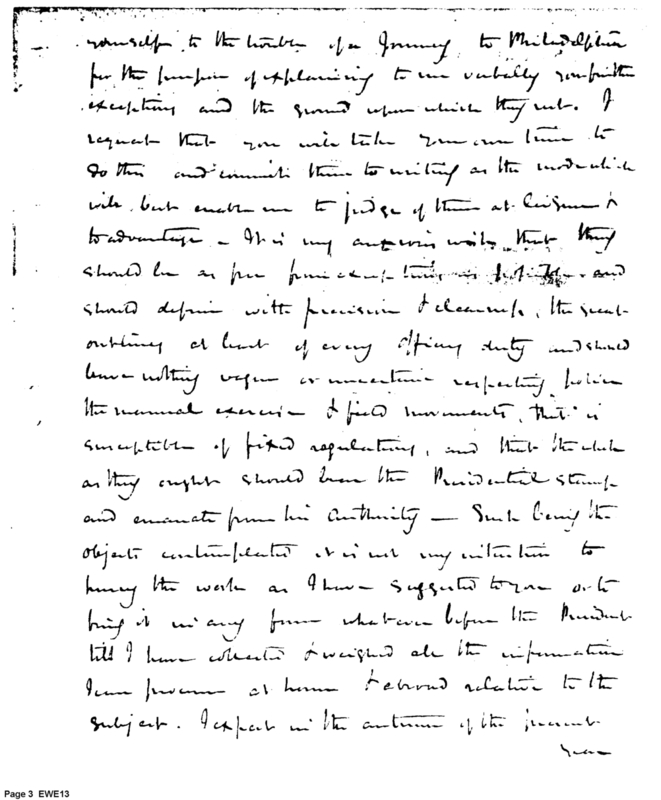 yourself to the trouble of a Journey to Philadelphia
for the purpose of explaining to me verbally your further
exceptions and the ground upon which they rest. I
request that you will take your own time to
do this and commit them to writing as the mode which
will best enable me to judge of them at leisure &
to advantage – It is my anxious wish that they
should be as free from exceptions as possible and
should define with precision & clearness, the great
outlines at least of every officers duty and should
leave nothing vague or uncertain respecting police
the manual exercise & field movements, that is
susceptible of fixed regulations, and that the whole
as they ought should bear the Presidential stamp
and emanate from his authority — Such being the
objects contemplated it is not my intention to
hurry the work as I have suggested to you or to
bring it in any form whatever before the President
till I have collected & weighed all the information
I can procure at home & abroad relative to the
subject. I expect in the autumn of the present
year
Page 3 EWE13